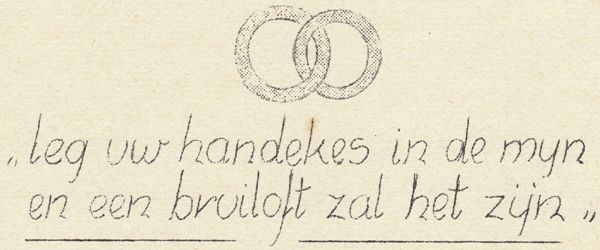 „leg uw handekes in de myn
en een bruiloft zal het zijn„